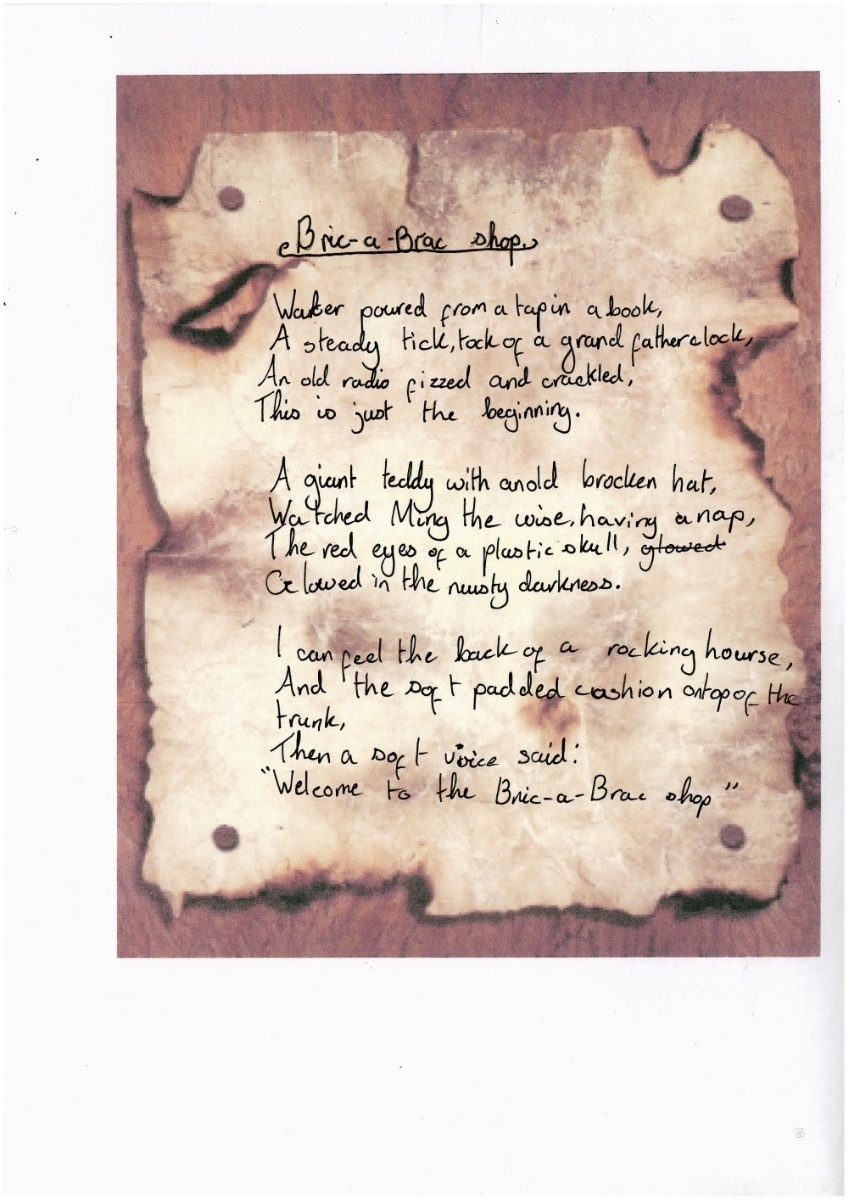 Bric-a-Brac shop
Water poured from a tap in a book,
A steady tick, tock of a grand father clock,
An old radio fizzed and crackled,
This is just the beginning.
A giant teddy with an old brocken hat,
Watched Ming the wise, having a nap,
The red eyes of a plastic skull, glowed
Glowed in the musty darkness.
I can feel the back of a rocking hourse,
And the soft padded cashion ontop of the
trunk,
Then a soft voice said:
"Welcome to the Bric-a-Brac shop"